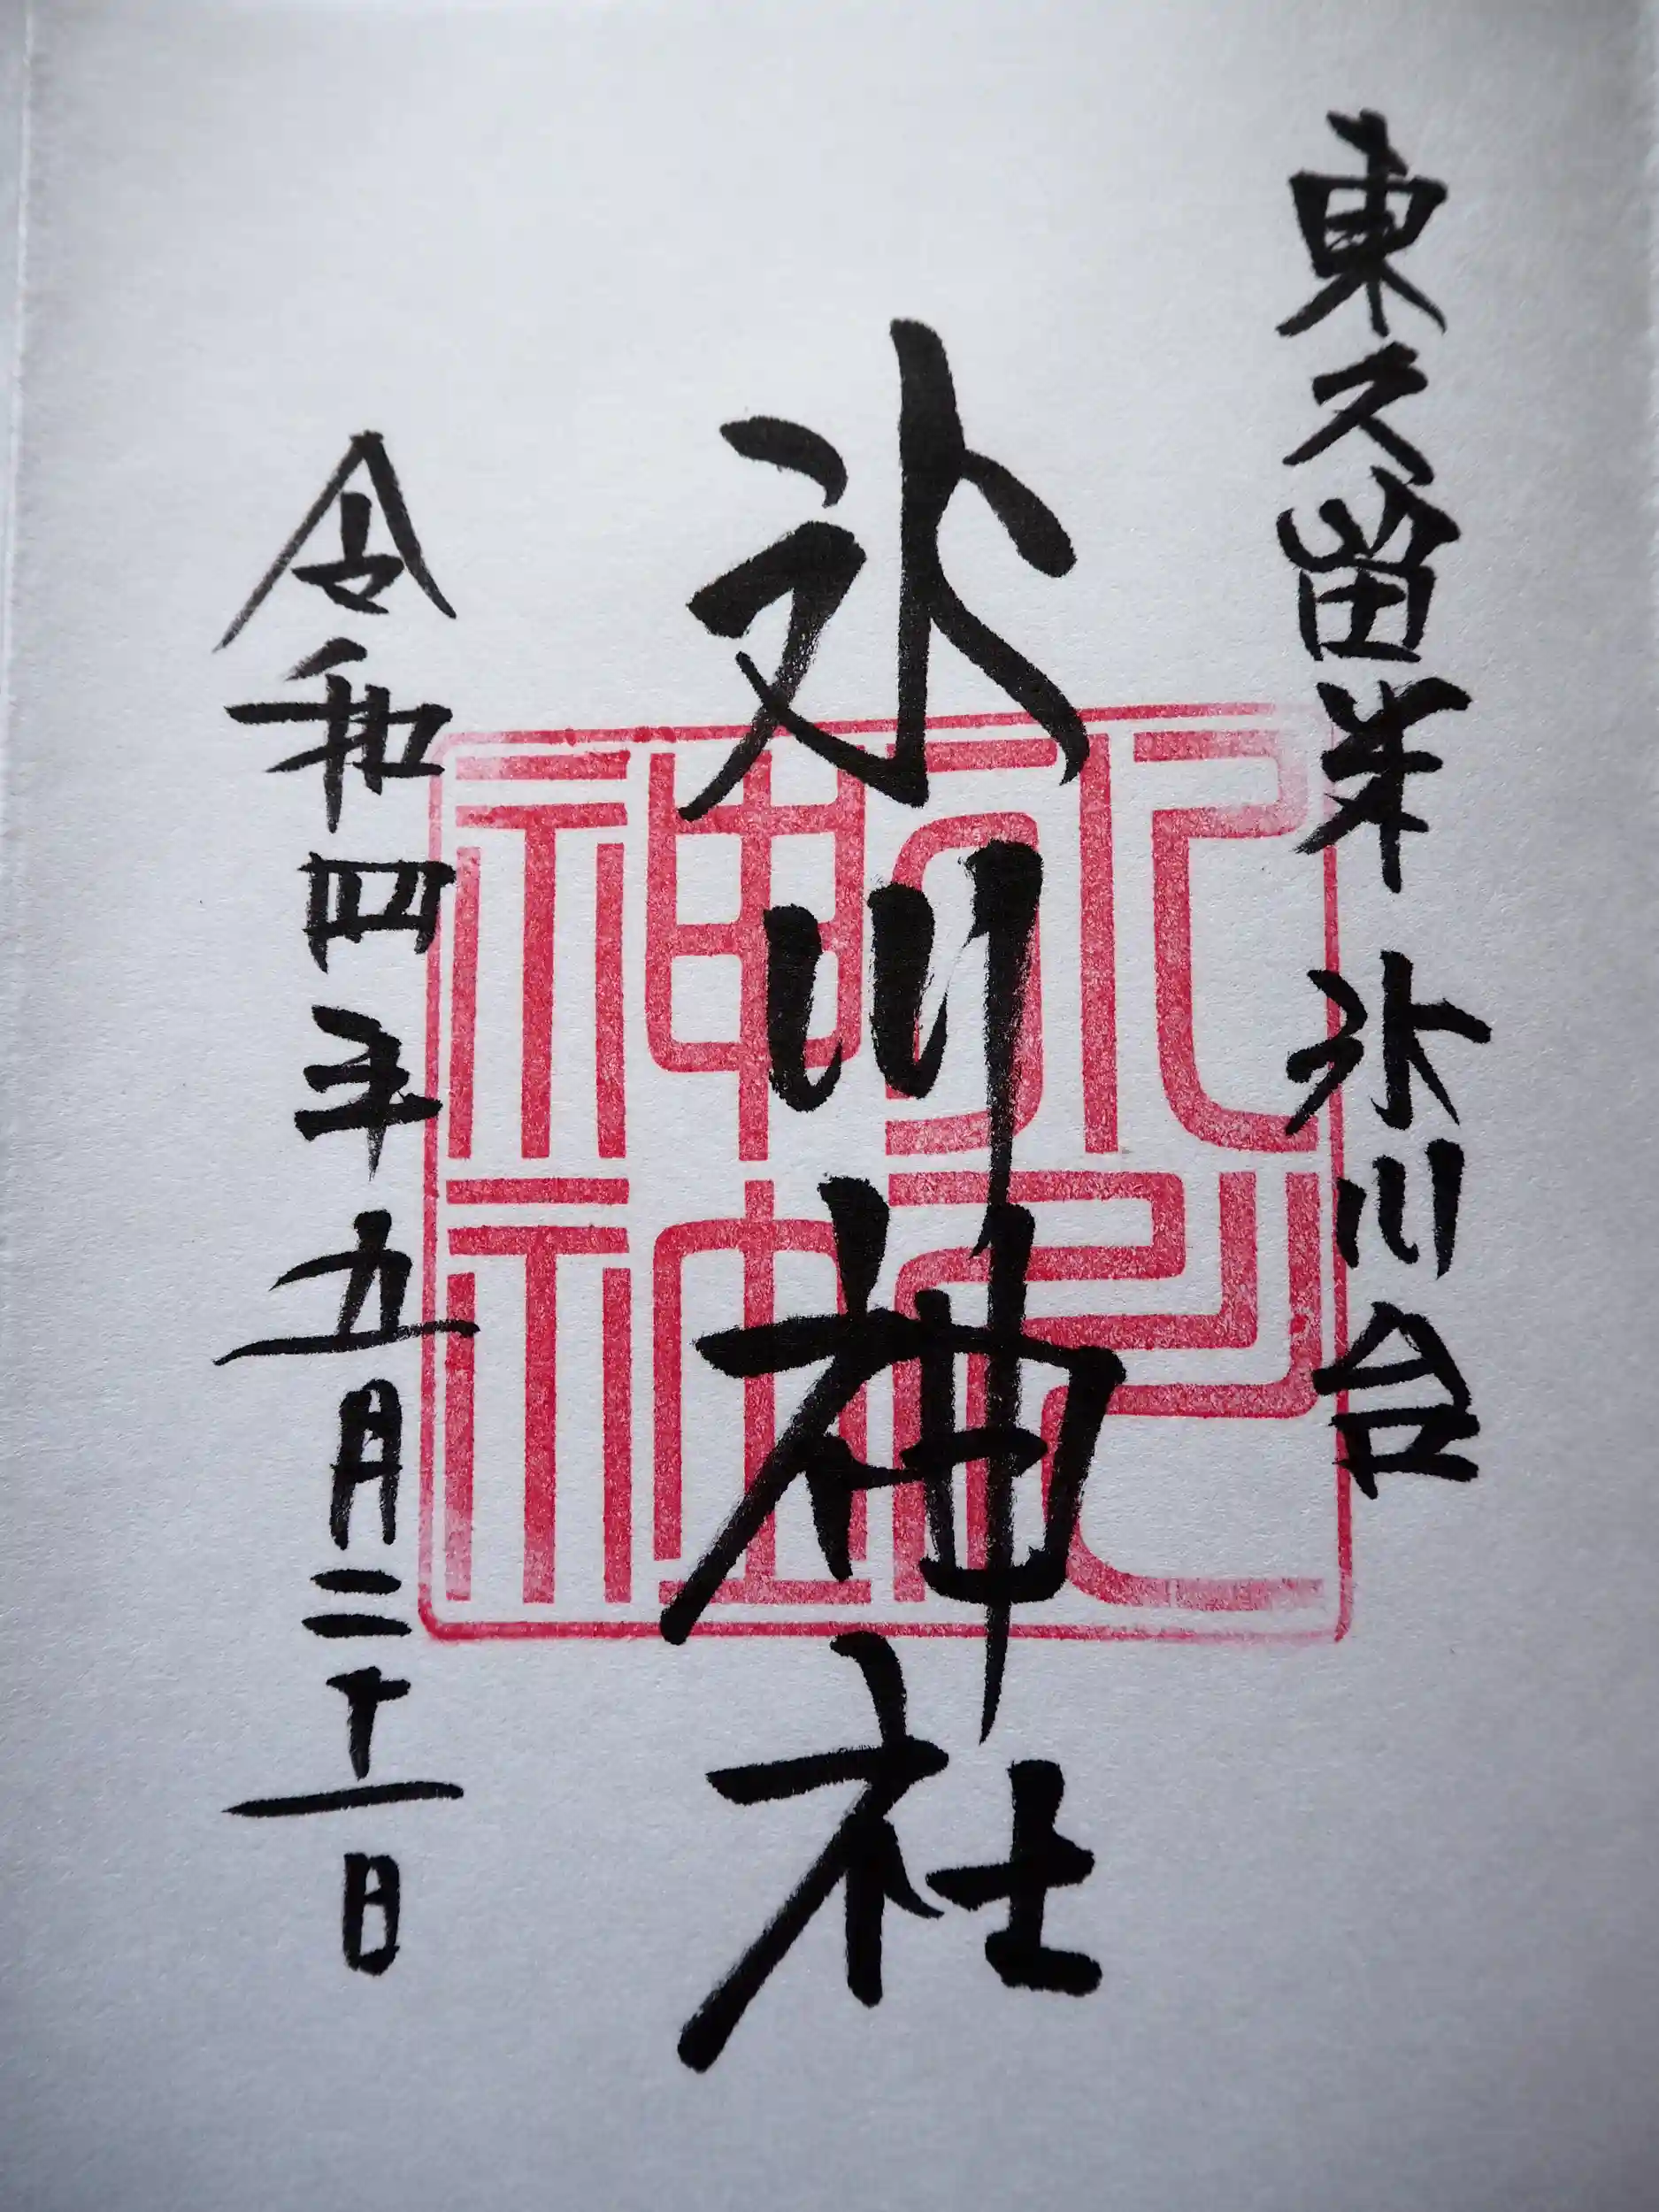 東久留米 氷川台
氷川神社
令和四年五月二十一日
氷川
神社